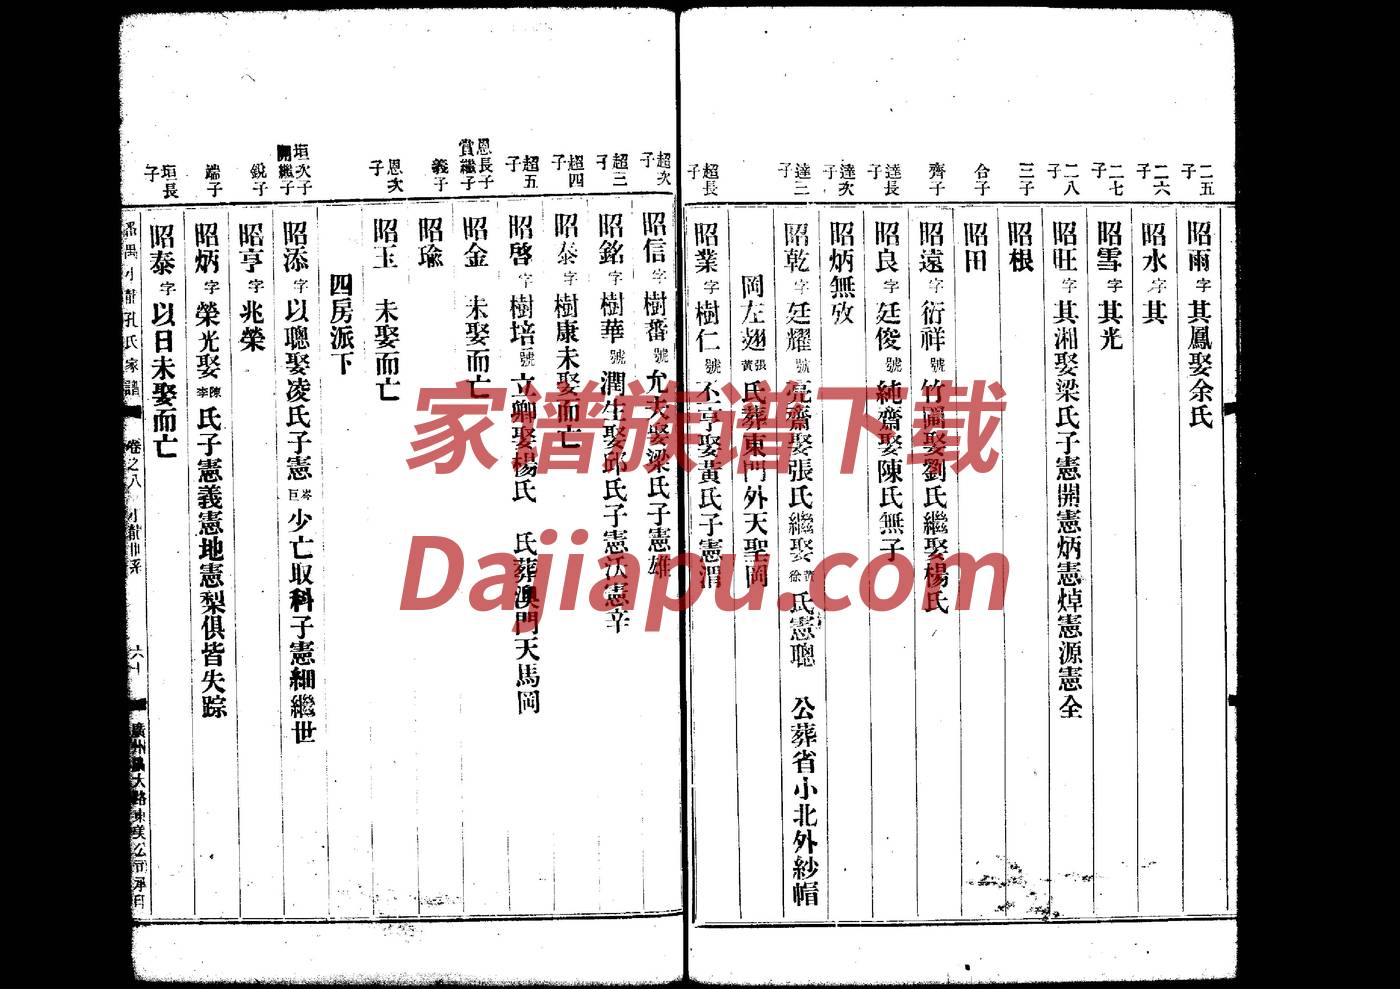 二五子
昭雨字其鳳娶余氏
二六子
昭水字其
二七子
昭雪字其光
二八子
昭旺字其湘娶梁氏子憲開憲炳憲焯憲源憲全
三子
昭根
合子
昭田
齊子
昭遠字衍祥號竹圃娶劉氏繼娶楊氏
達長子
昭良字廷俊號純齋娶陳氏無子
達次子
昭炳無攷
達三子
昭乾字廷耀號亮齋娶張氏繼娶黃徐氏憲聰 公葬省小北外紗帽
岡左翅張黃氏葬東門外天聖岡
超長子
昭業字樹仁號丕亨娶黃氏子憲渭
超次子
昭信字樹蕃號允大娶梁氏子憲雄
超三子
昭銘字樹華號潤生娶邱氏子憲沃憲辛
超四子
昭泰字樹康未娶而亡
超五子
昭啓字樹培號立卿娶楊氏 氏葬澳門天馬岡
恩長子賞繼子
昭金 未娶而亡
義子
昭瑜
恩次子
昭玉 未娶而亡
四房派下
垣次子開繼子
昭添字以聰娶凌氏子憲岑巨少亡取科子憲細繼世
銳子
昭亨兆榮
端子
昭炳字榮光娶陳李氏子憲義憲地憲梨俱皆失踪
垣長子
昭泰字以日未娶而亡
番禺小龍孔氏家譜 卷之八 小龍世系 六十
家谱族谱下载
Dajiapu.com